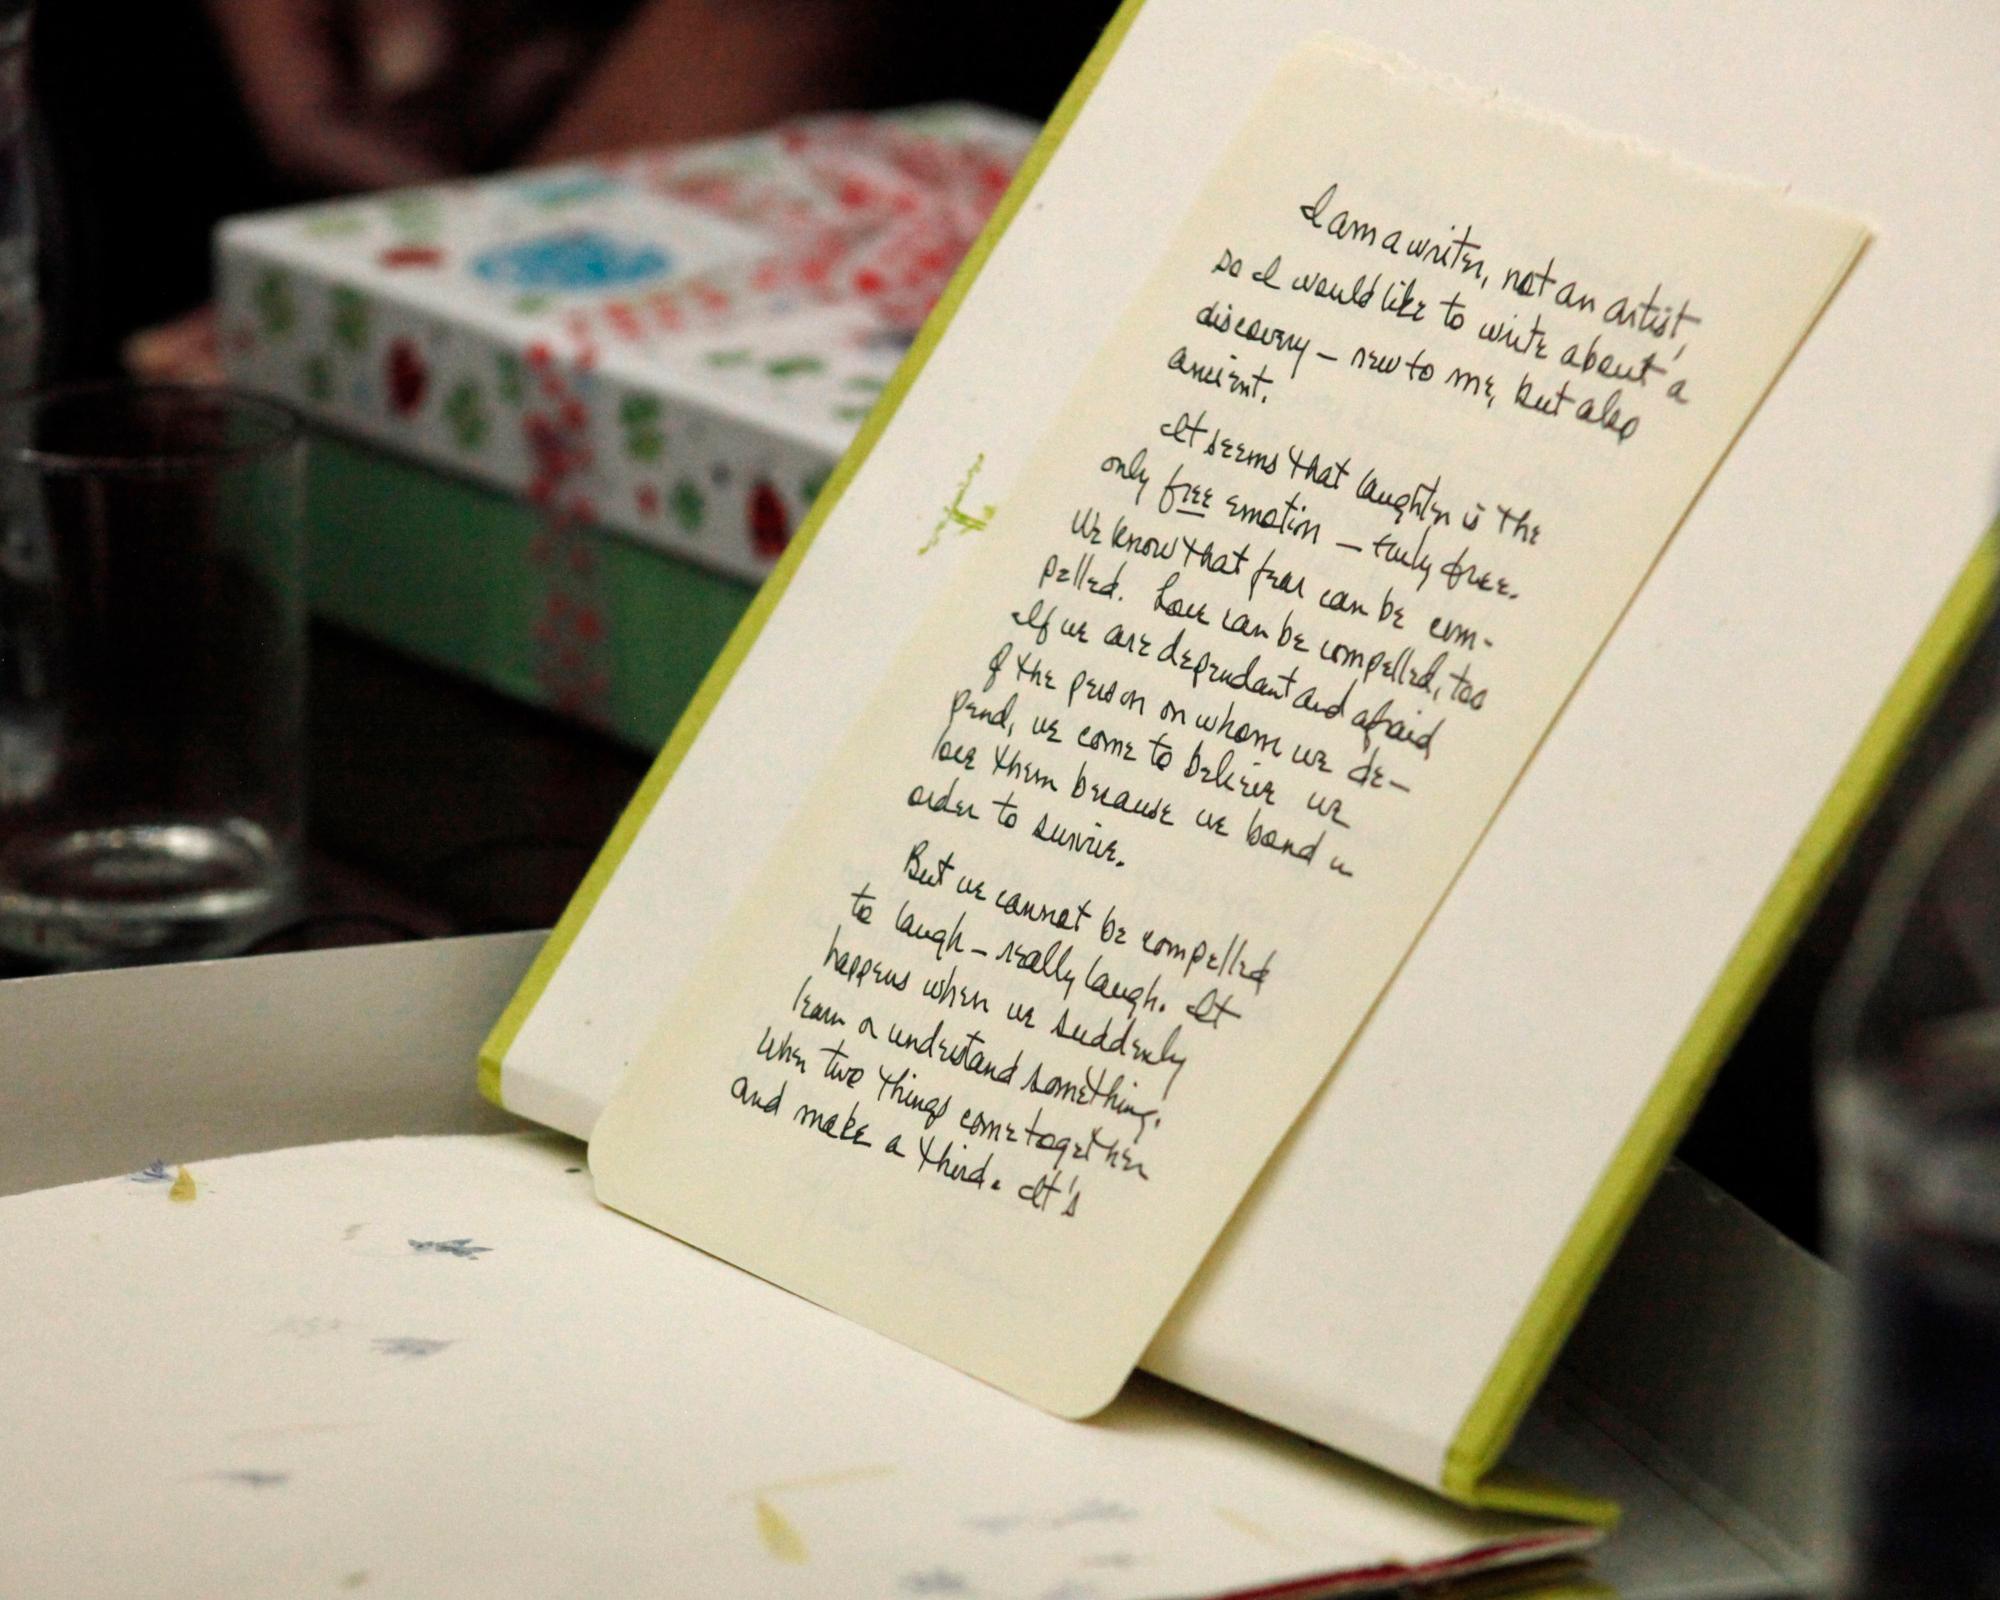 I am a writer, not an artist,
so I would like to write about a
discovery — new to me, but also
ancient.
It seems that laughter is the
only free emotion — truly free.
We know that fear can be com-
pelled. Love can be compelled, too
If we are dependant and afraid
of the person on whom we de-
pend, we come to believe we
love them because we bond in
order to survive.
But we cannot be compelled
to laugh — really laugh. It
happens when we suddenly
learn or understand something.
When two things come together
and make a third. It's